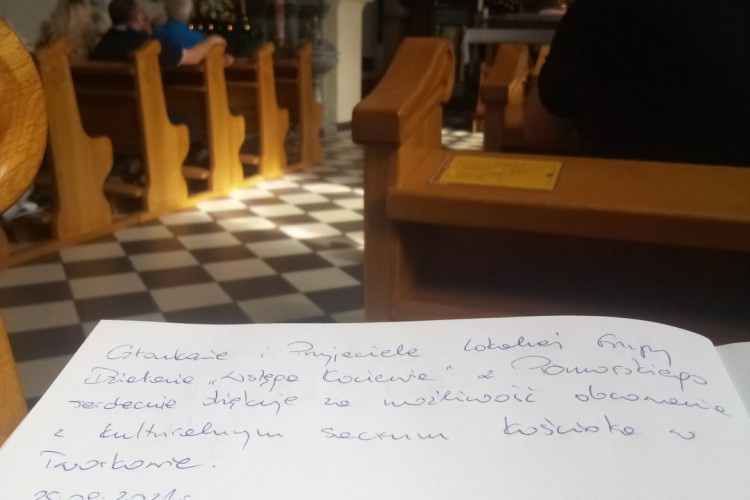 Członkowie i Przyjaciele Lokalnej Grupy
Działania „Wstęga Kociewia" z Pomorskiego
serdecznie dziękuje za możliwość obcowania
z kulturalnym sacrum kościoła w
Tworkowie.